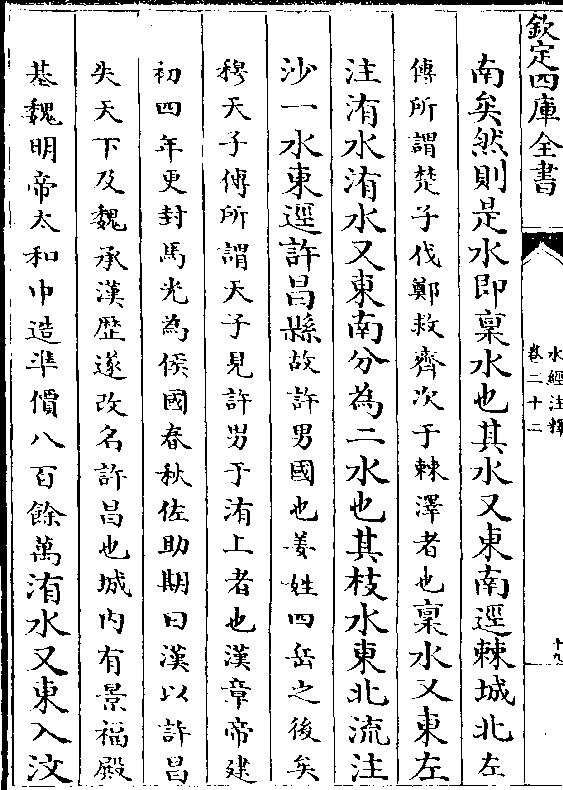 欽定四庫全書
水經注釋
卷二十二
十九
南矣然則是水即稟水也其水又東南逕棘城北左
傳所謂楚子伐鄭救齊次于棘澤者也稟水又東左
注洧水洧水又東南分為二水也其枝水東北流注
沙一水東逕許昌縣故許男國也姜姓四岳之後矣
穆天子傳所謂天子見許男于洧上者也漢章帝建
初四年更封馬光為侯國春秋佐助期曰漢以許昌
失天下及魏承漢歴遂改名許昌也城内有景福殿
基魏明帝太和中造凖價八百餘萬洧水又東入汶